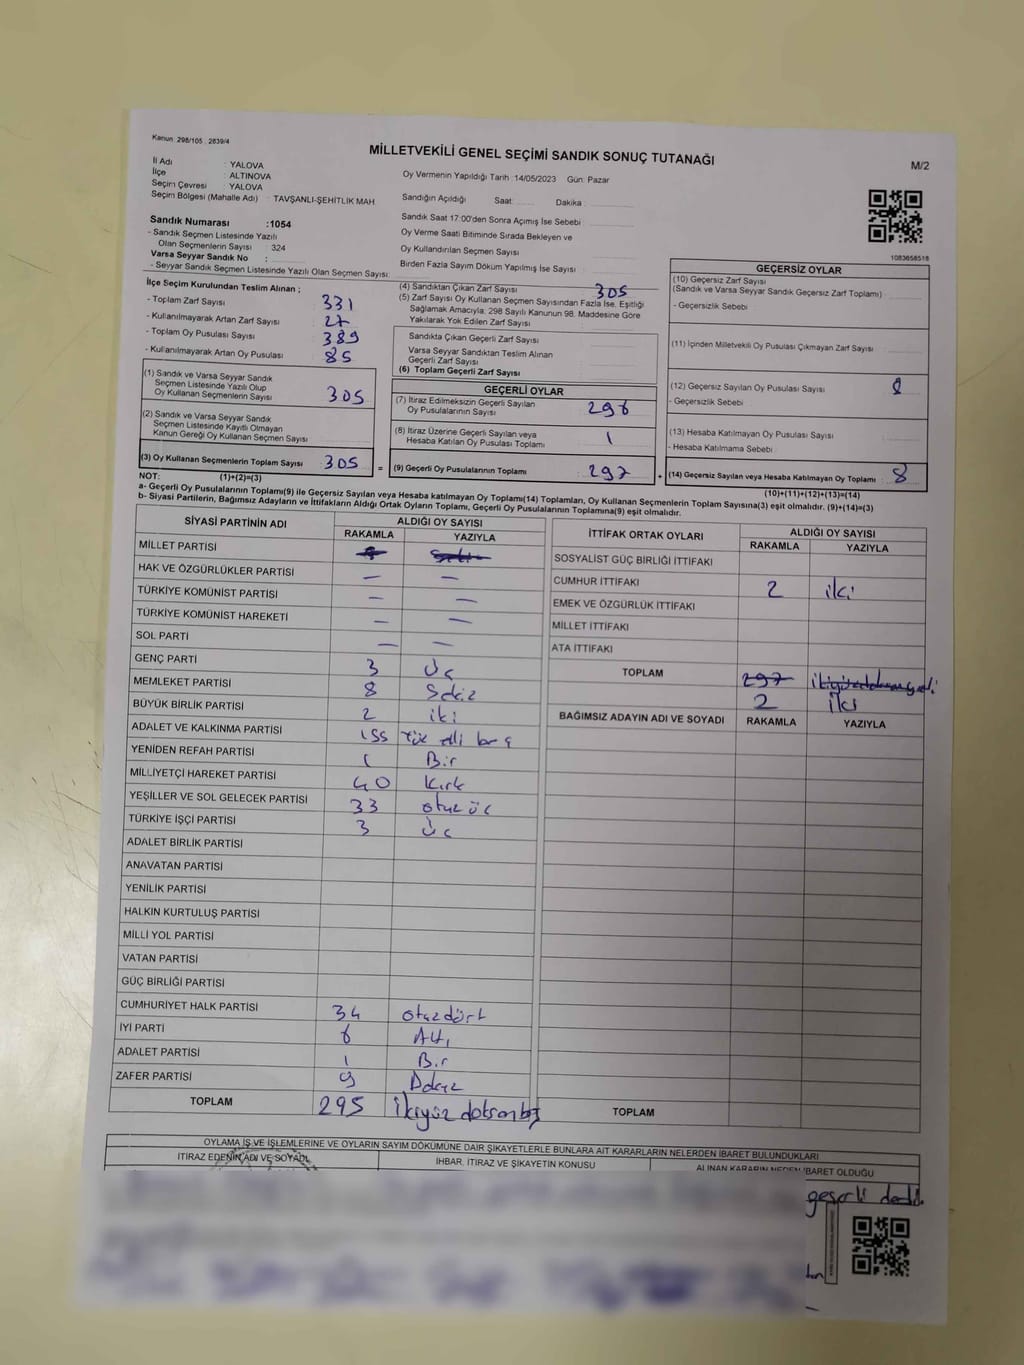 Kanun: 298/105 , 2839/4
MİLLETVEKİLİ GENEL SEÇİMİ SANDIK SONUÇ TUTANAĞI
M/2
İl Adı : YALOVA
İlçe : ALTINOVA
Seçim Çevresi : YALOVA
Seçim Bölgesi (Mahalle Adı) : TAVŞANLI-ŞEHİTLİK MAH.
Oy Vermenin Yapıldığı Tarih :14/05/2023 Gün: Pazar
Sandığın Açıldığı Saat: Dakika :
Sandık Numarası :1054
- Sandık Seçmen Listesinde Yazılı
Olan Seçmenlerin Sayısı : 324
Varsa Seyyar Sandık No :
- Seyyar Sandık Seçmen Listesinde Yazılı Olan Seçmen Sayısı:
Sandık Saat 17:00'den Sonra Açımış İse Sebebi :
Oy Verme Saati Bitiminde Sırada Bekleyen ve
Oy Kullandırılan Seçmen Sayısı :
Birden Fazla Sayım Döküm Yapılmış İse Sayısı :
1083658518
İlçe Seçim Kurulundan Teslim Alınan ;
- Toplam Zarf Sayısı : 331
- Kullanılmayarak Artan Zarf Sayısı : 27
- Toplam Oy Pusulası Sayısı : 389
- Kullanılmayarak Artan Oy Pusulası : 85
(1) Sandık ve Varsa Seyyar Sandık
Seçmen Listesinde Yazılı Olup
Oy Kullanan Seçmenlerin Sayısı : 305
(2) Sandık ve Varsa Seyyar Sandık
Seçmen Listesinde Kayıtlı Olmayan
Kanun Gereği Oy Kullanan Seçmen Sayısı :
(3) Oy Kullanan Seçmenlerin Toplam Sayısı : 305
(4) Sandıktan Çıkan Zarf Sayısı : 305
(5) Zarf Sayısı Oy Kullanan Seçmen Sayısından Fazla İse, Eşitliği
Sağlamak Amacıyla; 298 Sayılı Kanunun 98. Maddesine Göre
Yakılarak Yok Edilen Zarf Sayısı :
Sandıkta Çıkan Geçerli Zarf Sayısı :
Varsa Seyyar Sandıktan Teslim Alınan
Geçerli Zarf Sayısı :
(6) Toplam Geçerli Zarf Sayısı :
GEÇERLİ OYLAR
(7) İtiraz Edilmeksizin Geçerli Sayılan
Oy Pusulalarının Sayısı : 296
(8) İtiraz Üzerine Geçerli Sayılan veya
Hesaba Katılan Oy Pusulası Toplamı : 1
= (9) Geçerli Oy Pusulalarının Toplamı : 297 +
GEÇERSİZ OYLAR
(10) Geçersiz Zarf Sayısı
(Sandık ve Varsa Seyyar Sandık Geçersiz Zarf Toplamı) :
- Geçersizlik Sebebi :
(11) İçinden Milletvekili Oy Pusulası Çıkmayan Zarf Sayısı :
(12) Geçersiz Sayılan Oy Pusulası Sayısı : 8
- Geçersizlik Sebebi :
(13) Hesaba Katılmayan Oy Pusulası Sayısı :
- Hesaba Katılmama Sebebi :
(14) Geçersiz Sayılan veya Hesaba Katılmayan Oy Toplamı : 8
NOT: (1)+(2)=(3)
(10)+(11)+(12)+(13)=(14)
a- Geçerli Oy Pusulalarının Toplamı(9) ile Geçersiz Sayılan veya Hesaba katılmayan Oy Toplamı(14) Toplamları, Oy Kullanan Seçmenlerin Toplam Sayısına(3) eşit olmalıdır. (9)+(14)=(3)
b- Siyasi Partilerin, Bağımsız Adayların ve İttifakların Aldığı Ortak Oyların Toplamı, Geçerli Oy Pusulalarının Toplamına(9) eşit olmalıdır.
SİYASİ PARTİNİN ADI ALDIĞI OY SAYISI
RAKAMLA YAZIYLA
MİLLET PARTİSİ
HAK VE ÖZGÜRLÜKLER PARTİSİ — —
TÜRKİYE KOMÜNİST PARTİSİ — —
TÜRKİYE KOMÜNİST HAREKETİ — —
SOL PARTİ — —
GENÇ PARTİ 3 Üç
MEMLEKET PARTİSİ 8 Sekiz
BÜYÜK BİRLİK PARTİSİ 2 iki
ADALET VE KALKINMA PARTİSİ 155 Yüz elli beş
YENİDEN REFAH PARTİSİ 1 Bir
MİLLİYETÇİ HAREKET PARTİSİ 40 Kırk
YEŞİLLER VE SOL GELECEK PARTİSİ 33 otuz üç
TÜRKİYE İŞÇİ PARTİSİ 3 Üç
ADALET BİRLİK PARTİSİ
ANAVATAN PARTİSİ
YENİLİK PARTİSİ
HALKIN KURTULUŞ PARTİSİ
MİLLİ YOL PARTİSİ
VATAN PARTİSİ
GÜÇ BİRLİĞİ PARTİSİ
CUMHURİYET HALK PARTİSİ 34 otuzdört
İYİ PARTİ 6 Altı
ADALET PARTİSİ 1 Bir
ZAFER PARTİSİ 9 Dokuz
TOPLAM 295 ikiyüz doksanbeş
İTTİFAK ORTAK OYLARI ALDIĞI OY SAYISI
RAKAMLA YAZIYLA
SOSYALİST GÜÇ BİRLİĞİ İTTİFAKI
CUMHUR İTTİFAKI 2 iki
EMEK VE ÖZGÜRLÜK İTTİFAKI
MİLLET İTTİFAKI
ATA İTTİFAKI
TOPLAM 297 ikiyüzdoksanyedi
2 iki
BAĞIMSIZ ADAYIN ADI VE SOYADI RAKAMLA YAZIYLA
TOPLAM
OYLAMA İŞ VE İŞLEMLERINE VE OYLARIN SAYIM DÖKÜMÜNE DAİR ŞİKAYETLERLE BUNLARA AİT KARARLARIN NELERDEN İBARET BULUNDUKLARI
İTİRAZ EDENİN ADI VE SOYADI İHBAR, İTİRAZ VE ŞİKAYETİN KONUSU ALINAN KARARIN NEDEN İBARET OLDUĞU
geçerli dendi.